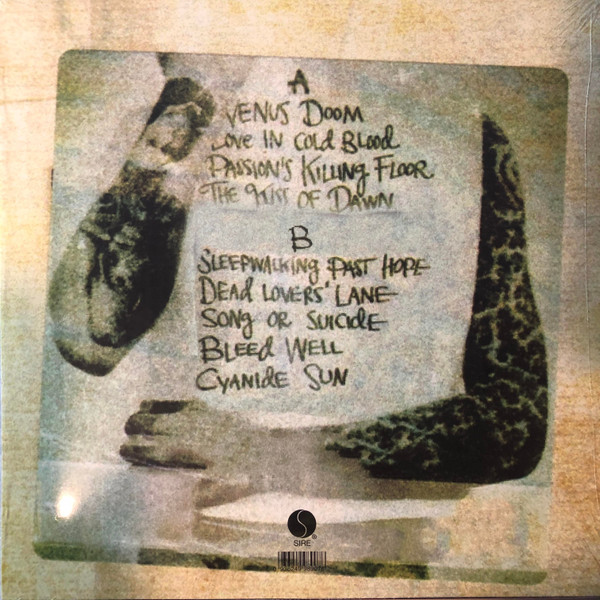 A
VENUS DOOM
LOVE IN COLD BLOOD
PASSION'S KILLING FLOOR
THE KISS OF DAWN
B
SLEEPWALKING PAST HOPE
DEAD LOVERS' LANE
SONG OR SUICIDE
BLEED WELL
CYANIDE SUN
SIRE®